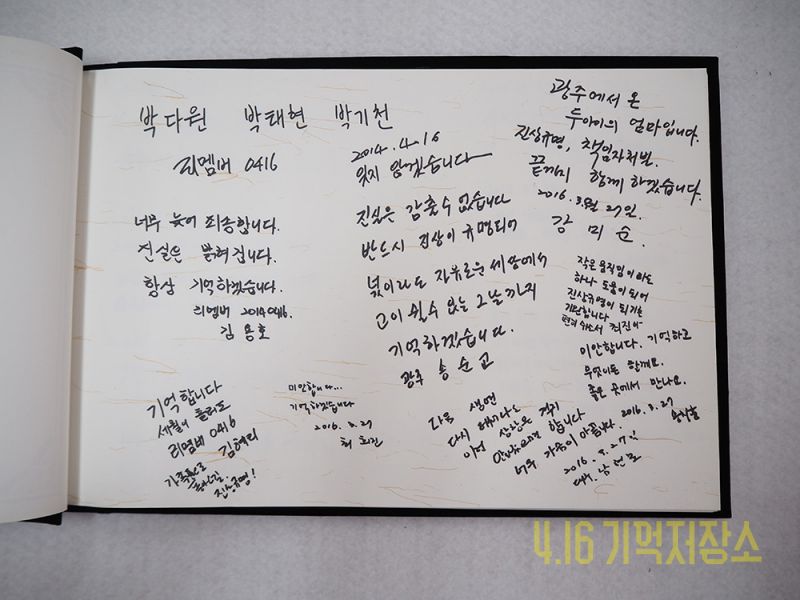 박다원 박태현 박기천
리멤버 0416
2014.4.16
잊지 않겠습니다
광주에서 온
두아이의 엄마입니다.
진상규명, 책임자처벌.
끝까지 함께 하겠습니다.
2016.3월 27일.
강 미 순.
너무 늦어 죄송합니다.
진실은 밝혀집니다.
항상 기억하겠습니다.
리멤버 20140416.
김 용 호
진실은 감출수 없습니다
반드시 진상이 규명되어
넋이라도 자유로운 세상에서
고이 쉴수 있는 그날까지
기억하겠습니다.
광주 송 순 교
작은 움직임이라도
하나 도움이 되어
진상규명이 되기를
기원합니다
편히 쉬소서 최진아
미안합니다. 기억하고
무엇이든 할께요.
좋은 곳에서 만나요.
2016.3.27
기억합니다
세월이 흘러도
리멤버 0416
김현리
진상규명!
미안합니다...
기억하겠습니다
2016.3.27
최 희진
다음 생엔
다시 태어나도
이런
합니다
너무 가슴이 아픕니다.
2016.3.27.
4.16 기억저장소